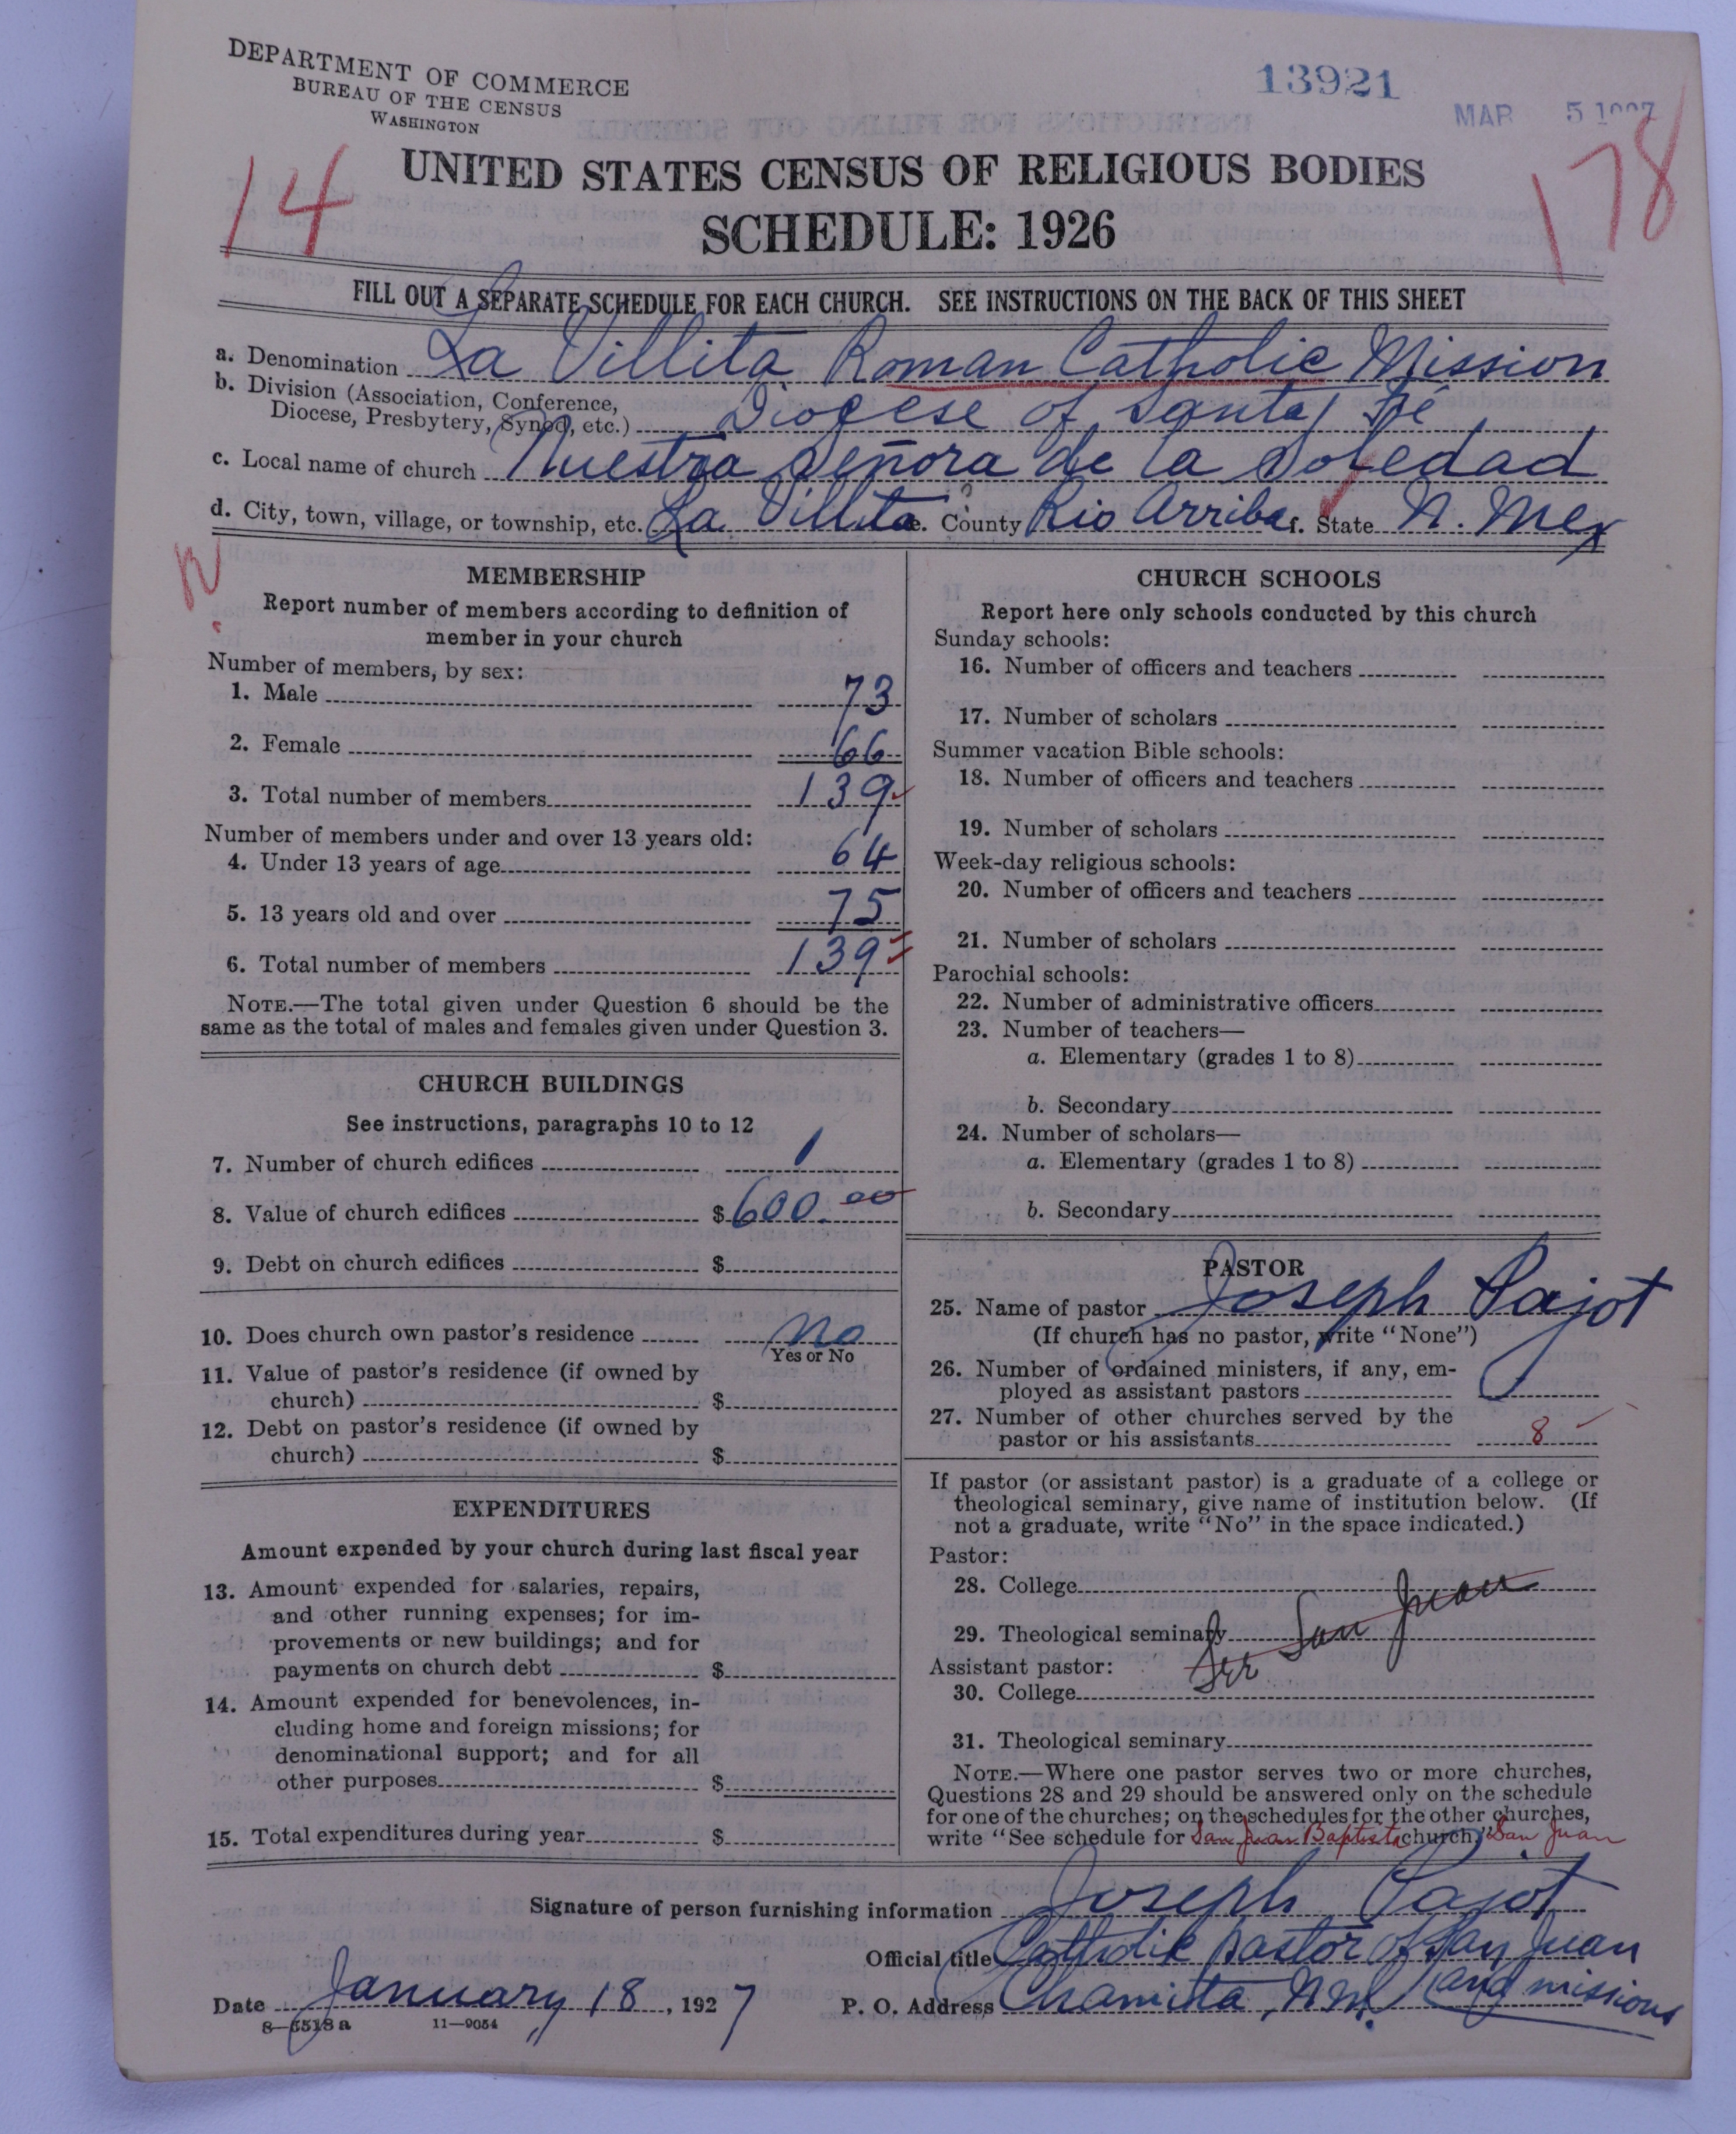 DEPARTMENT OF COMMERCE
BUREAU OF THE CENSUS
WASHINGTON
13921
MAR 5
14
178
UNITED STATES CENSUS OF RELIGIOUS BODIES
SCHEDULE: 1926
FILL OUT A SEPARATE SCHEDULE FOR EACH CHURCH. SEE INSTRUCTIONS ON THE BACK OF THIS SHEET
a. Denomination La Villita Roman Catholic Mission
b. Division (Association, Conference,
Diocese, Presbytery, Synod, etc.) Diocese of Santa Fé
c. Local name of church Nuestra Señora de la Soledad
d. City, town, village, or township, etc. La Villita e. County Rio Arriba f. State N. Mex
MEMBERSHIP
Report number of members according to definition of
member in your church
Number of members, by sex:
1. Male 73
2. Female 66
3. Total number of members 139
Number of members under and over 13 years old:
4. Under 13 years of age 64
5. 13 years old and over 75
6. Total number of members 139
NOTE.—The total given under Question 6 should be the
same as the total of males and females given under Question 3.
CHURCH BUILDINGS
See instructions, paragraphs 10 to 12
7. Number of church edifices 1
8. Value of church edifices $ 600.00
9. Debt on church edifices $
10. Does church own pastor's residence no
Yes or No
11. Value of pastor's residence (if owned by
church) $
12. Debt on pastor's residence (if owned by
church) $
EXPENDITURES
Amount expended by your church during last fiscal year
13. Amount expended for salaries, repairs,
and other running expenses; for im-
provements or new buildings; and for
payments on church debt $
14. Amount expended for benevolences, in-
cluding home and foreign missions; for
denominational support; and for all
other purposes $
15. Total expenditures during year $
CHURCH SCHOOLS
Report here only schools conducted by this church
Sunday schools:
16. Number of officers and teachers
17. Number of scholars
Summer vacation Bible schools:
18. Number of officers and teachers
19. Number of scholars
Week-day religious schools:
20. Number of officers and teachers
21. Number of scholars
Parochial schools:
22. Number of administrative officers
23. Number of teachers—
a. Elementary (grades 1 to 8)
b. Secondary
24. Number of scholars—
a. Elementary (grades 1 to 8)
b. Secondary
PASTOR
25. Name of pastor Joseph Pajot
(If church has no pastor, write "None")
26. Number of ordained ministers, if any, em-
ployed as assistant pastors
27. Number of other churches served by the
pastor or his assistants 8
If pastor (or assistant pastor) is a graduate of a college or
theological seminary, give name of institution below. (If
not a graduate, write "No" in the space indicated.)
Pastor:
28. College
29. Theological seminary San Juan
Assistant pastor:
30. College
31. Theological seminary
NOTE.—Where one pastor serves two or more churches,
Questions 28 and 29 should be answered only on the schedule
for one of the churches; on the schedules for the other churches,
write "See schedule for San Juan Baptista church," San Juan
Signature of person furnishing information Joseph Pajot
Official title Catholic pastor of San Juan
and missions
Date January 18, 1927 P. O. Address Chamita, N.M.
8—5518a 11—9054